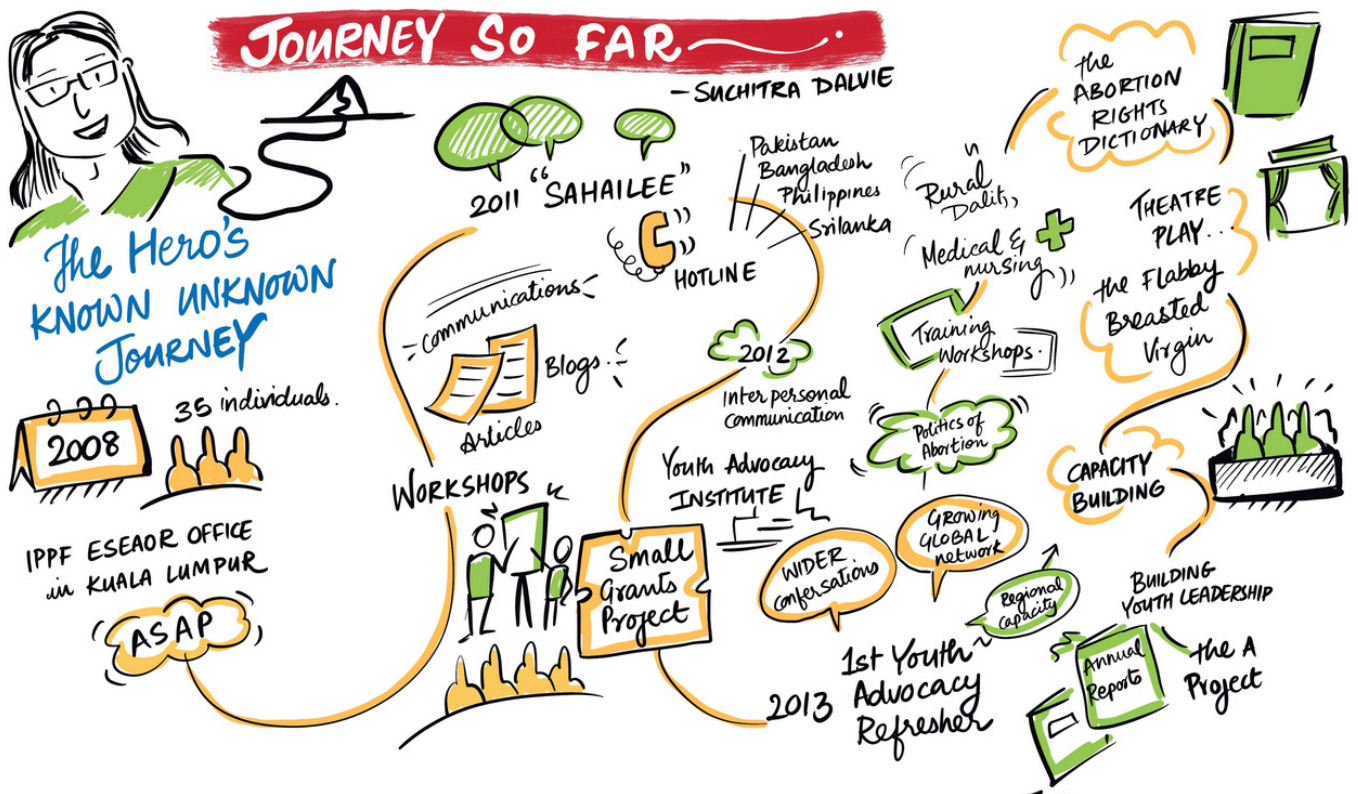 JOURNEY SO FAR
- SUCHITRA DALVIE
The Hero's
KNOWN UNKNOWN
JOURNEY
2008
35 individuals.
IPPF ESEAOR OFFICE
in KUALA LUMPUR
ASAP
2011 "SAHAILEE"
HOTLINE
communications
Blogs
Articles
WORKSHOPS
Small
Grants
Project
Pakistan
Bangladesh
Philippines
Srilanka
2012
Inter personal
communication
Youth Advocacy
INSTITUTE
WIDER
Confersations
GROWING
GLOBAL
network
Regional
Capacity
2013
1st Youth
Advocacy
Refresher
Rural
Dalit,,
Medical &
nursing
Training
Workshops.
Politics of
Abortion
the
ABORTION
RIGHTS
DICTIONARY
THEATRE
PLAY...
the Flabby
Breasted
Virgin
CAPACITY
BUILDING
BUILDING
YOUTH LEADERSHIP
Annual
Reports
the A
Project